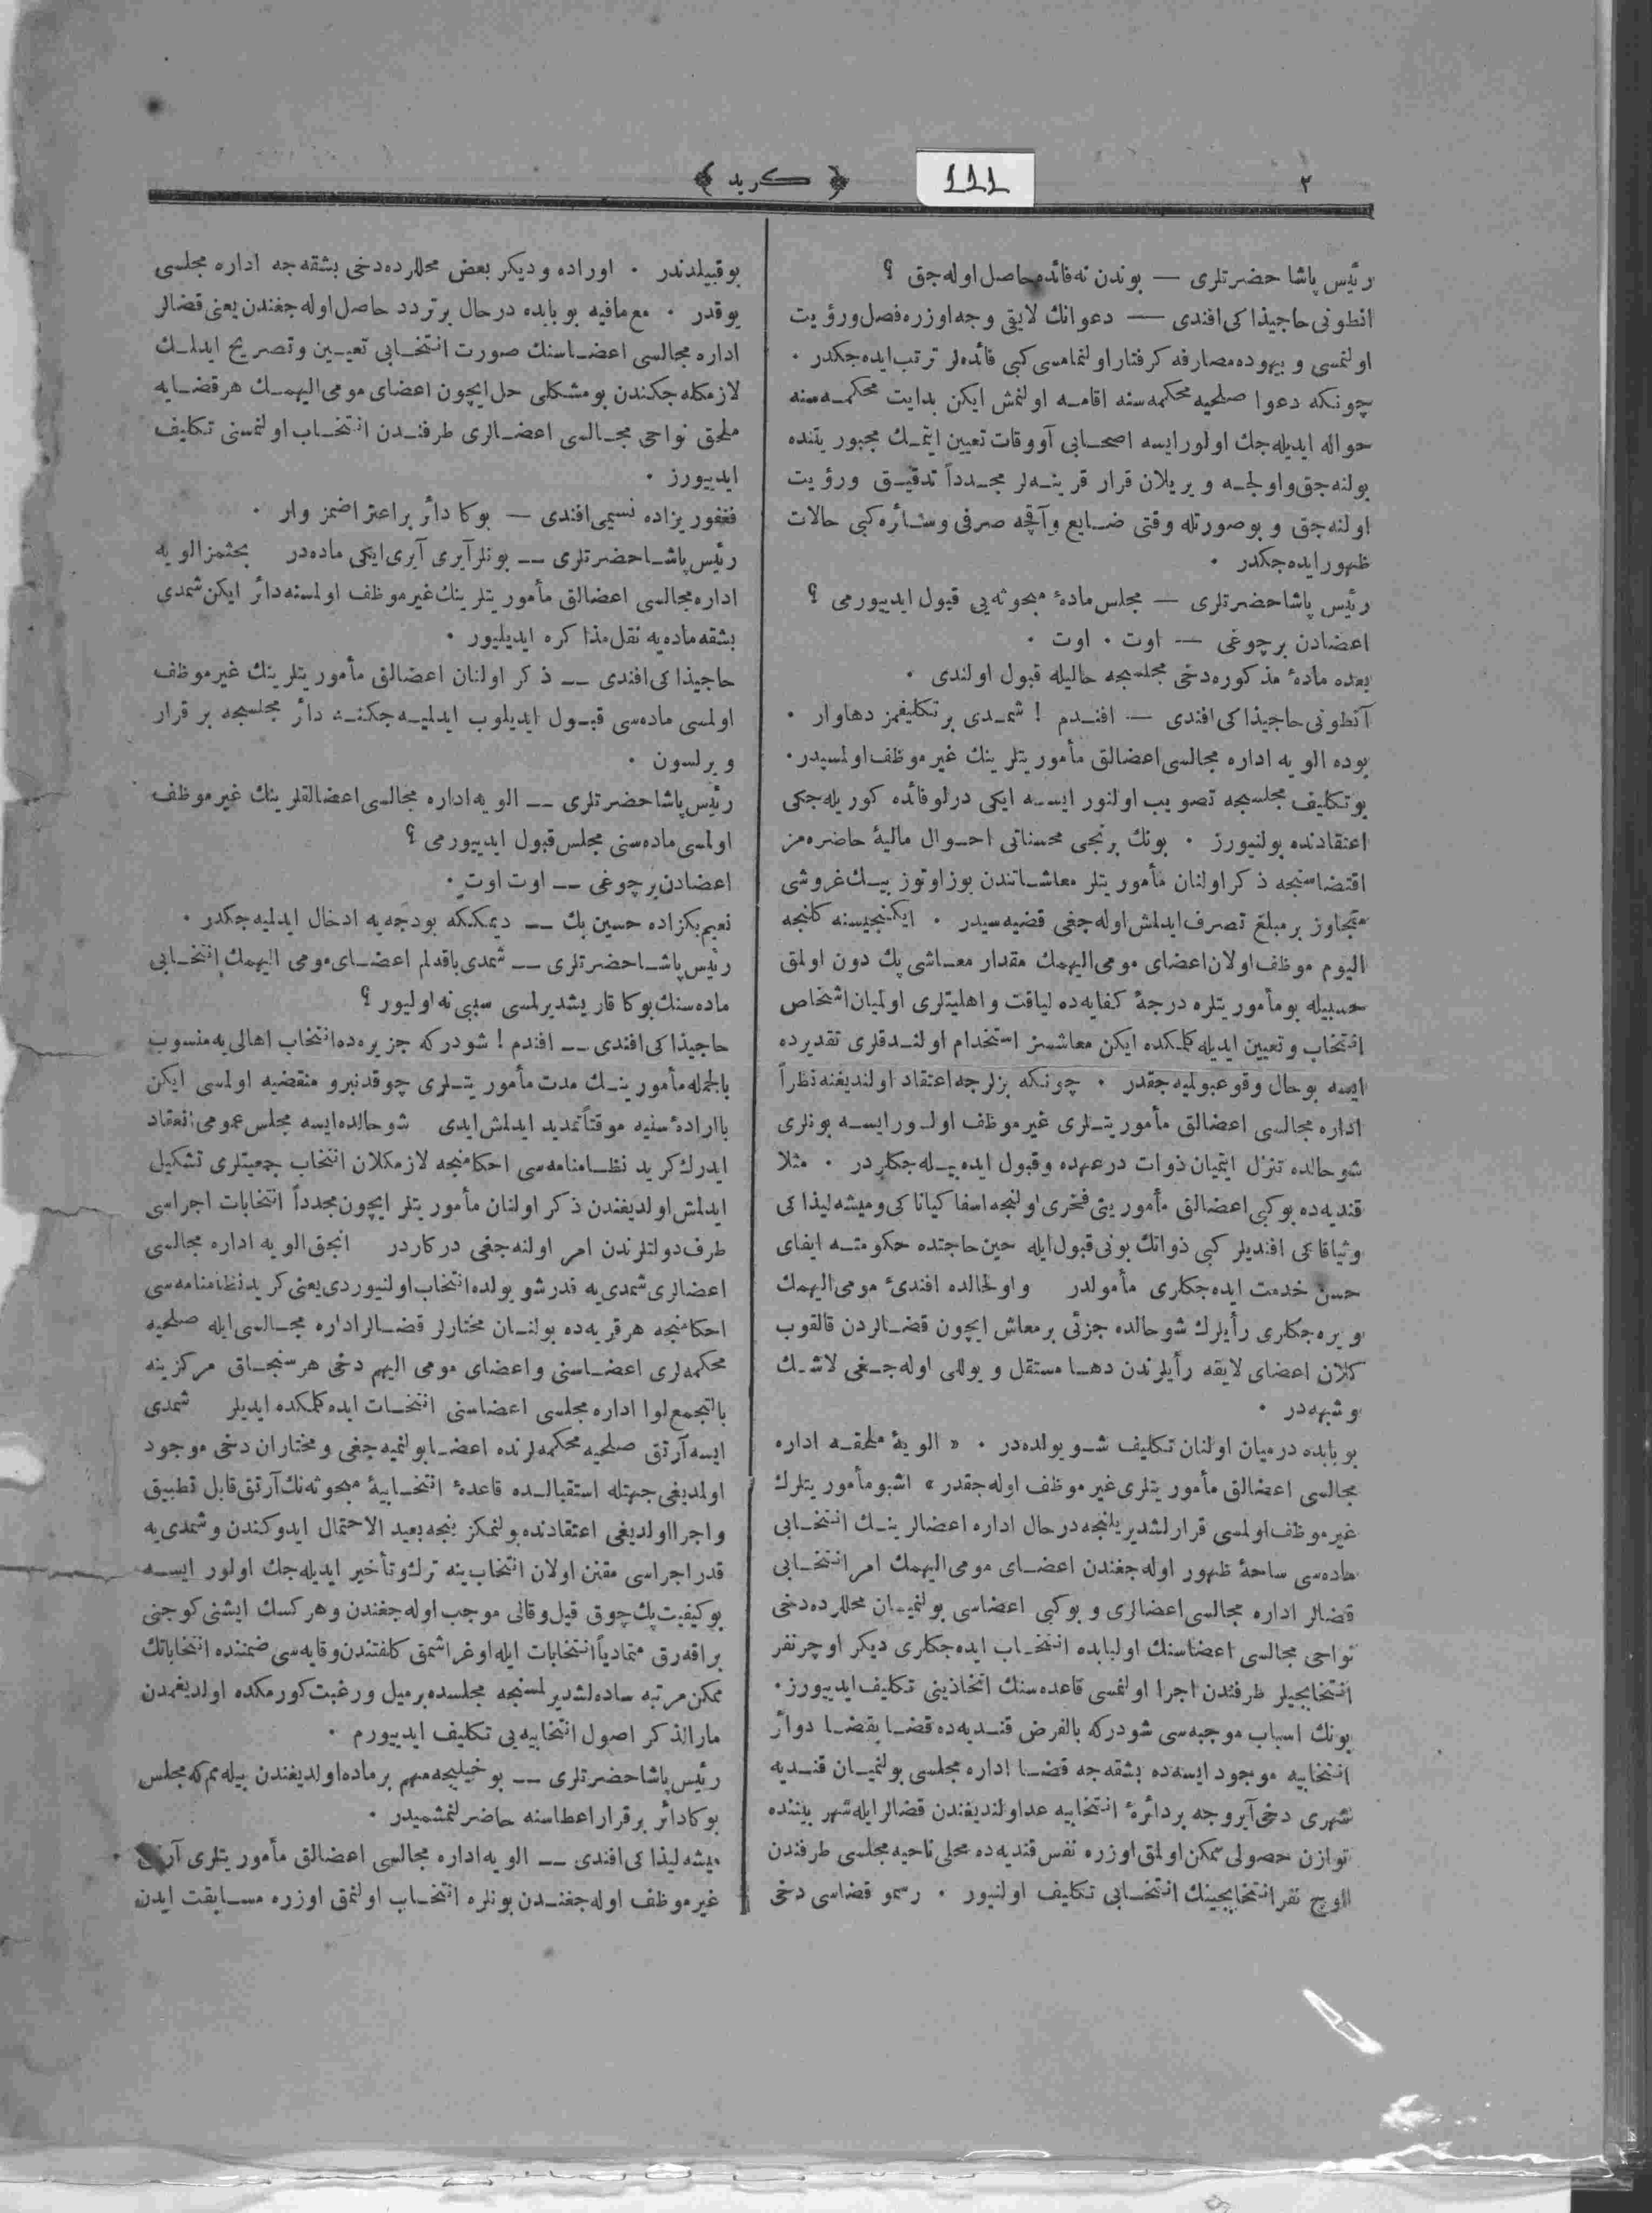 ٢
111
﴿ كريد ﴾
رئيس پاشا حضرتلری — بوندن نه فائده حاصل اوله جق ؟
انطونی حاجيذا کی افندی — دعوانك لايقی وجه اوزره فصل ورؤيت
اولنمسی و بيهوده مصارفه کرفتار اولنمامسی کبی فائده لر ترتب ايده جکدر .
چونکه دعوا صلحيه محکمه سنه اقامه اولنمش ايکن بدايت محکمه سنه
حواله ايديله جك اولورايسه اصحابی آووقات تعيين ايتمك مجبوريتنده
بولنه جق واولجه ويريلان قرار قرينه لر مجدداً تدقيق ورؤيت
اولنه جق و بوصورتله وقتی ضايع وآقچه صرفی وسائره کبی حالات
ظهور ايده جکدر .
رئيس پاشا حضرتلری — مجلس مادهٔ مبحوثه يی قبول ايدييورمی ؟
اعضادن برچوغی — اوت . اوت .
بعده مادهٔ مذکوره دخی مجلسجه حاليله قبول اولندی .
آنطونی حاجيذا کی افندی — افندم ! شمدی بر تکليفمز دها وار .
بوده الويه اداره مجالسی اعضالق مأموريتلرينك غير موظف اولمسيدر .
بو تکليف مجلسجه تصويب اولنور ايسه ايکی درلو فائده کوريله جکی
اعتقادنده بولنيورز . بونك برنجی محسناتی احوال ماليهٔ حاضره مز
اقتضاسنجه ذکر اولنان مأموريتلر معاشاتندن يوز اوتوز بيك غروشی
متجاوز بر مبلغ تصرف ايدلمش اوله جغی قضيه سيدر . ايکنجيسنه کلنجه
اليوم موظف اولان اعضای مومی اليهمك مقدار معاشی پك دون اولمق
حسبيله بو مأموريتلره درجهٔ کفايه ده لياقت و اهليتلری اولميان اشخاص
انتخاب و تعيين ايديله کلمکده ايکن معاشسز استخدام اولندقلری تقديرده
ايسه بوحال وقوعبولميه جقدر . چونکه بزلرجه اعتقاد اولنديغنه نظراً
اداره مجالسی اعضالق مأموريتلری غير موظف اولور ايسه بونلری
شوحالده تنزل ايتميان ذوات درعهده وقبول ايده بيله جکلردر . مثلا
قنديه ده بو کبی اعضالق مأموريتی فخری اولنجه اسفا کياناکی وميشه ليذا کی
وثياقا کی افنديلر کبی ذواتك بونی قبول ايله حين حاجتده حکومته ايفای
حسن خدمت ايده جکلری مأمولدر واولحالده افندیٔ مومی اليهمك
ويره جکلری رأيلرك شوحالده جزئی بر معاش ايچون قضالردن قالقوب
کلان اعضای لايقه رأيلرندن دها مستقل و يوللی اوله جغی لاشك
وشبهه در .
بو بابده درميان اولنان تکليف شو يولده در . « الويهٔ ملحقه اداره
مجالسی اعضالق مأموريتلری غير موظف اوله جقدر » اشبو مأموريتلرك
غير موظف اولمسی قرارلشديريلنجه درحال اداره اعضالرينك انتخابی
ماده سی ساحهٔ ظهور اوله جغندن اعضای مومی اليهمك امر انتخابی
قضالر اداره مجالسی اعضالری و بوکبی اعضاسی بولنميان محللرده دخی
نواحی مجالسی اعضاسنك اولبابده انتخاب ايده جکلری ديکر اوچر نفر
انتخابجيلر طرفندن اجرا اولنمسی قاعده سنك اتخاذينی تکليف ايدييورز .
بونك اسباب موجبه سی شودرکه بالفرض قنديه ده قضا بقضا دوائر
انتخابيه موجود ايسه ده بشقه جه قضا اداره مجلسی بولنميان قنديه
شهری دخی آيروجه بر دائرهٔ انتخابيه عداولنديغندن قضالر ايله شهر بيننده
توازن حصولی ممکن اولمق اوزره نفس قنديه ده محلی ناحيه مجلسی طرفندن
اوچ نفر انتخابجينك انتخابی تکليف اولنيور . رسمو قضاسی دخی
بوقبيلدندر . اوراده وديکر بعض محللرده دخی بشقه جه اداره مجلسی
يوقدر . مع مافيه بو بابده درحال بر تردد حاصل اوله جغندن يعنی قضالر
اداره مجالسی اعضاسنك صورت انتخابی تعيين وتصريح ايدلمك
لازمکله جکندن بو مشکلی حل ايچون اعضای مومی اليهمك هر قضايه
ملحق نواحی مجالسی اعضالری طرفندن انتخاب اولنمسنی تکليف
ايدييورز .
فغفوريزاده نسيمی افندی — بوکا دائر بر اعتراضمز وار .
رئيس پاشا حضرتلری — بونلر آيری آيری ايکی ماده در بحثمز الويه
اداره مجالسی اعضالق مأموريتلرينك غير موظف اولمسنه دائر ايکن شمدی
بشقه ماده يه نقل مذاکره ايديليور .
حاجيذا کی افندی — ذکر اولنان اعضالق مأموريتلرينك غير موظف
اولمسی ماده سی قبول ايديلوب ايدلميه جکنه دائر مجلسجه بر قرار
ويرلسون .
رئيس پاشا حضرتلری — الويه اداره مجالسی اعضالقلرينك غير موظف
اولمسی ماده سنی مجلس قبول ايدييورمی ؟
اعضادن برچوغی — اوت اوت .
نعيم بکزاده حسين بك — ديمکيکه بودجه يه ادخال ايدلميه جکدر .
رئيس پاشا حضرتلری — شمدی باقه لم اعضای مومی اليهمك انتخابی
ماده سنك بوکا قاريشديرلمسی سببی نه اوليور ؟
حاجيذا کی افندی — افندم ! شودر که جزيره ده انتخاب اهالی يه منسوب
بالجمله مأمورينك مدت مأموريتلری چوقدنبرو منقضيه اولمسی ايکن
باارادهٔ سنيه موقتاً تمديد ايدلمش ايدی شوحالده ايسه مجلس عمومی انعقاد
ايدرك کريد نظامنامه سی احکامنجه لازمکلان انتخاب جمعيتلری تشکيل
ايدلمش اولديغندن ذکر اولنان مأموريتلر ايچون مجدداً انتخابات اجراسی
طرف دولتلرندن امر اولنه جغی درکاردر انجق الويه اداره مجالسی
اعضالری شمدی يه قدر شو يولده انتخاب اولنيوردی يعنی کريد نظامنامه سی
احکامنجه هر قريه ده بولنان مختارلر قضالر اداره مجالسی ايله صلحيه
محکمه لری اعضاسنی و اعضای مومی اليهم دخی هر سنجاق مرکزينه
بالتجمع لوا اداره مجلسی اعضاسنی انتخاب ايده کلمکده ايديلر شمدی
ايسه آرتق صلحيه محکمه لرنده اعضا بولنميه جغی و مختاران دخی موجود
اولمديغی جهتله استقبالده قاعدهٔ انتخابيهٔ مبحوثه نك آرتق قابل تطبيق
واجرا اولديغی اعتقادنده بولنمکز بنجه بعيد الاحتمال ايدوکندن وشمدی يه
قدر اجراسی مقنن اولان انتخاب ينه ترك وتأخير ايديله جك اولور ايسه
بو کيفيت پك چوق قيل وقالی موجب اوله جغندن وهرکسك ايشنی کوجنی
براقه رق متمادياً انتخابات ايله اوغراشمق کلفتندن وقايه سی ضمننده انتخاباتك
ممکن مرتبه ساده لشديرلمسنجه مجلسده بر ميل ورغبت کورمکده اولديغمدن
مارالذکر اصول انتخابيه يی تکليف ايدييورم .
رئيس پاشا حضرتلری — بو خيليجه مهم بر ماده اولديغندن بيله مم که مجلس
بوکا دائر بر قرار اعطاسنه حاضرلنمشميدر .
ميشه ليذا کی افندی — الويه اداره مجالسی اعضالق مأموريتلری آرتق
غير موظف اوله جغندن بونلره انتخاب اولنمق اوزره مسابقت ايدن